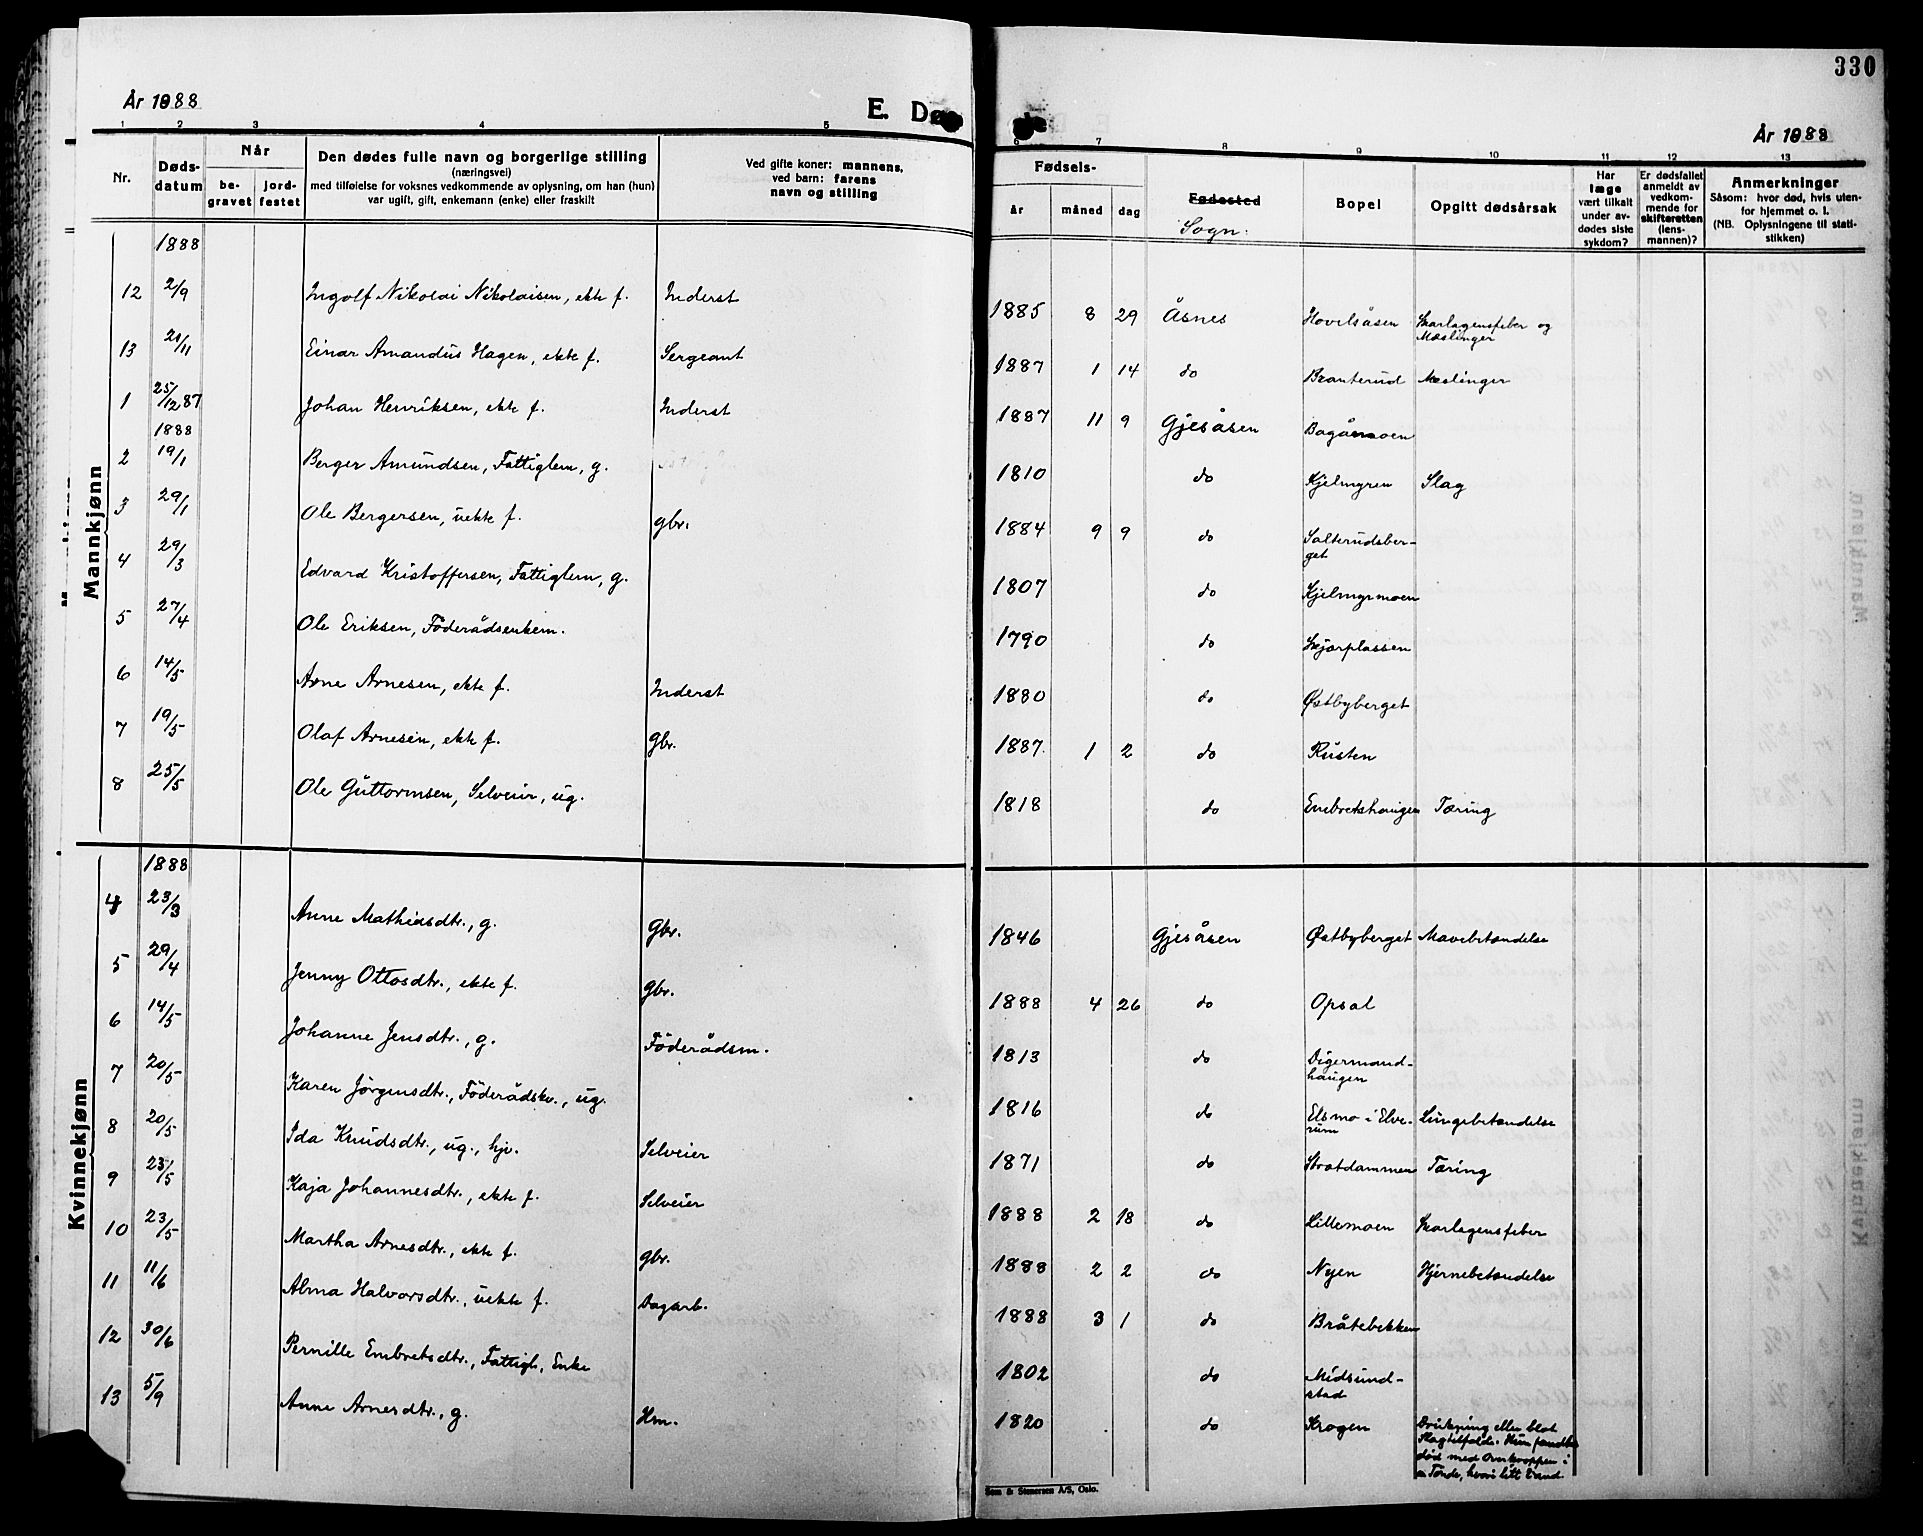 330
År 1888
E. Dø
de
År 1888
1 2 3 4 5
6 7 8 9 10 11 12 13
Nr.
Døds-
datum
Når
be-
gravet
jord-
festet
Den dødes fulle navn og borgerlige stilling
(næringsvei)
med tilføielse for voksnes vedkommende av oplysning, om han (hun)
var ugift, gift, enkemann (enke) eller fraskilt
Ved gifte koner: mannens,
ved barn: farens
navn og stilling
Fødsels-
år måned dag
Fødested
Sogn.
Bopel
Opgitt dødsårsak
Har
læge
vært tilkalt
under av-
dødes siste
sykdom?
Er dødsfallet
anmeldt av
vedkom-
mende for
skifteretten
(lens-
mannen)?
Anmerkninger
Såsom: hvor død, hvis uten-
for hjemmet o. l.
(NB. Oplysningene til stati-
stikken)
Mannkjønn
1888
12 2/9 Ingolf Nikolai Nikolaisen, ekte f. Inderst 1885 8 29 Åsnes Hovelsåsen Skarlagensfeber og
Mæslinger
13 21/11 Einar Amandus Hagen, ekte f. Sergeant 1887 1 14 do Branterud Mæslinger
1 25/12 87 Johan Henriksen, ekte f. Inderst 1887 11 9 Gjesåsen Bagåsmoen
1888
2 19/1 Berger Amundsen, Fattiglem, g. 1810 do Kjelmyren Slag
3 29/1 Ole Bergersen, uekte f. gbr. 1884 9 9 do Salterudsber-
get
4 29/3 Edvard Kristoffersen, Fattiglem, g. 1807 do Kjelmyrmoen
5 27/4 Ole Eriksen, Föderådsenkem. 1790 do Skjærplassen
6 14/5 Arne Arnesen, ekte f. Inderst 1880 do Østbyberget
7 19/5 Olaf Arnesen, ekte f. Gbr. 1887. 1 2 do Rusten
8 25/5 Ole Guttormsen, Selveier, ug. 1818 do Embretshaugen Tæring
Kvinnekjønn
1888
4 23/3 Anne Mathiasdtr., g. Gbr. 1846 Gjesåsen Østbyberget Mavebetændelse
5 29/4 Jenny Ottosdtr., ekte f. Gbr. 1888 4 26 do Opsal
6 14/5 Johanne Jensdtr., g. Föderådsm. 1813 do Digermand-
haugen
7 20/5 Karen Jörgensdtr., Föderådskv., ug. 1816 do Elsmo i Elve-
rum Lungebetændelse
8 20/5 Ida Knudsdtr., ug., hjv. Selveier 1871 do Stotdammen Tæring
9 23/5 Kaja Johannesdtr., ekte f. Selveier 1888 2 18 do Lillemoen Skarlagensfeber
10 23/5 Martha Arnesdtr., ekte f. gbr. 1888 2 2 do Nyen Hjernebetændelse
11 11/6 Alma Halvorsdtr., uekte f. Dagarb. 1888 3 1 do Bråtebekken
12 30/6 Pernille Embretsdtr., Fattigl., Enke 1802 do Midsund-
stad
13 5/9 Anne Arnesdtr., g. Hm. 1820 do Krogen Drukning eller blot
Slagtilfælde. Hun fandtes
död med Overkroppen i
en Tönde, hvori litt Vand
Sem & Stenersen A/S, Oslo.